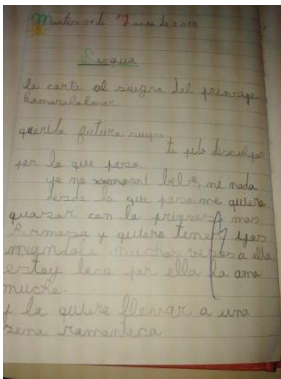 Martes 7 de
Lengua
la carta al suegro del principe
querida futura suegra
te pido desculpas
por lo que paso
ya no ni nada
desde lo que paso me quiero
quasar con la mas
ermosa y quiero tener
besos a ella
estoy loca por ella la amo
mucho
y la quiero llevar a una
sena romantica